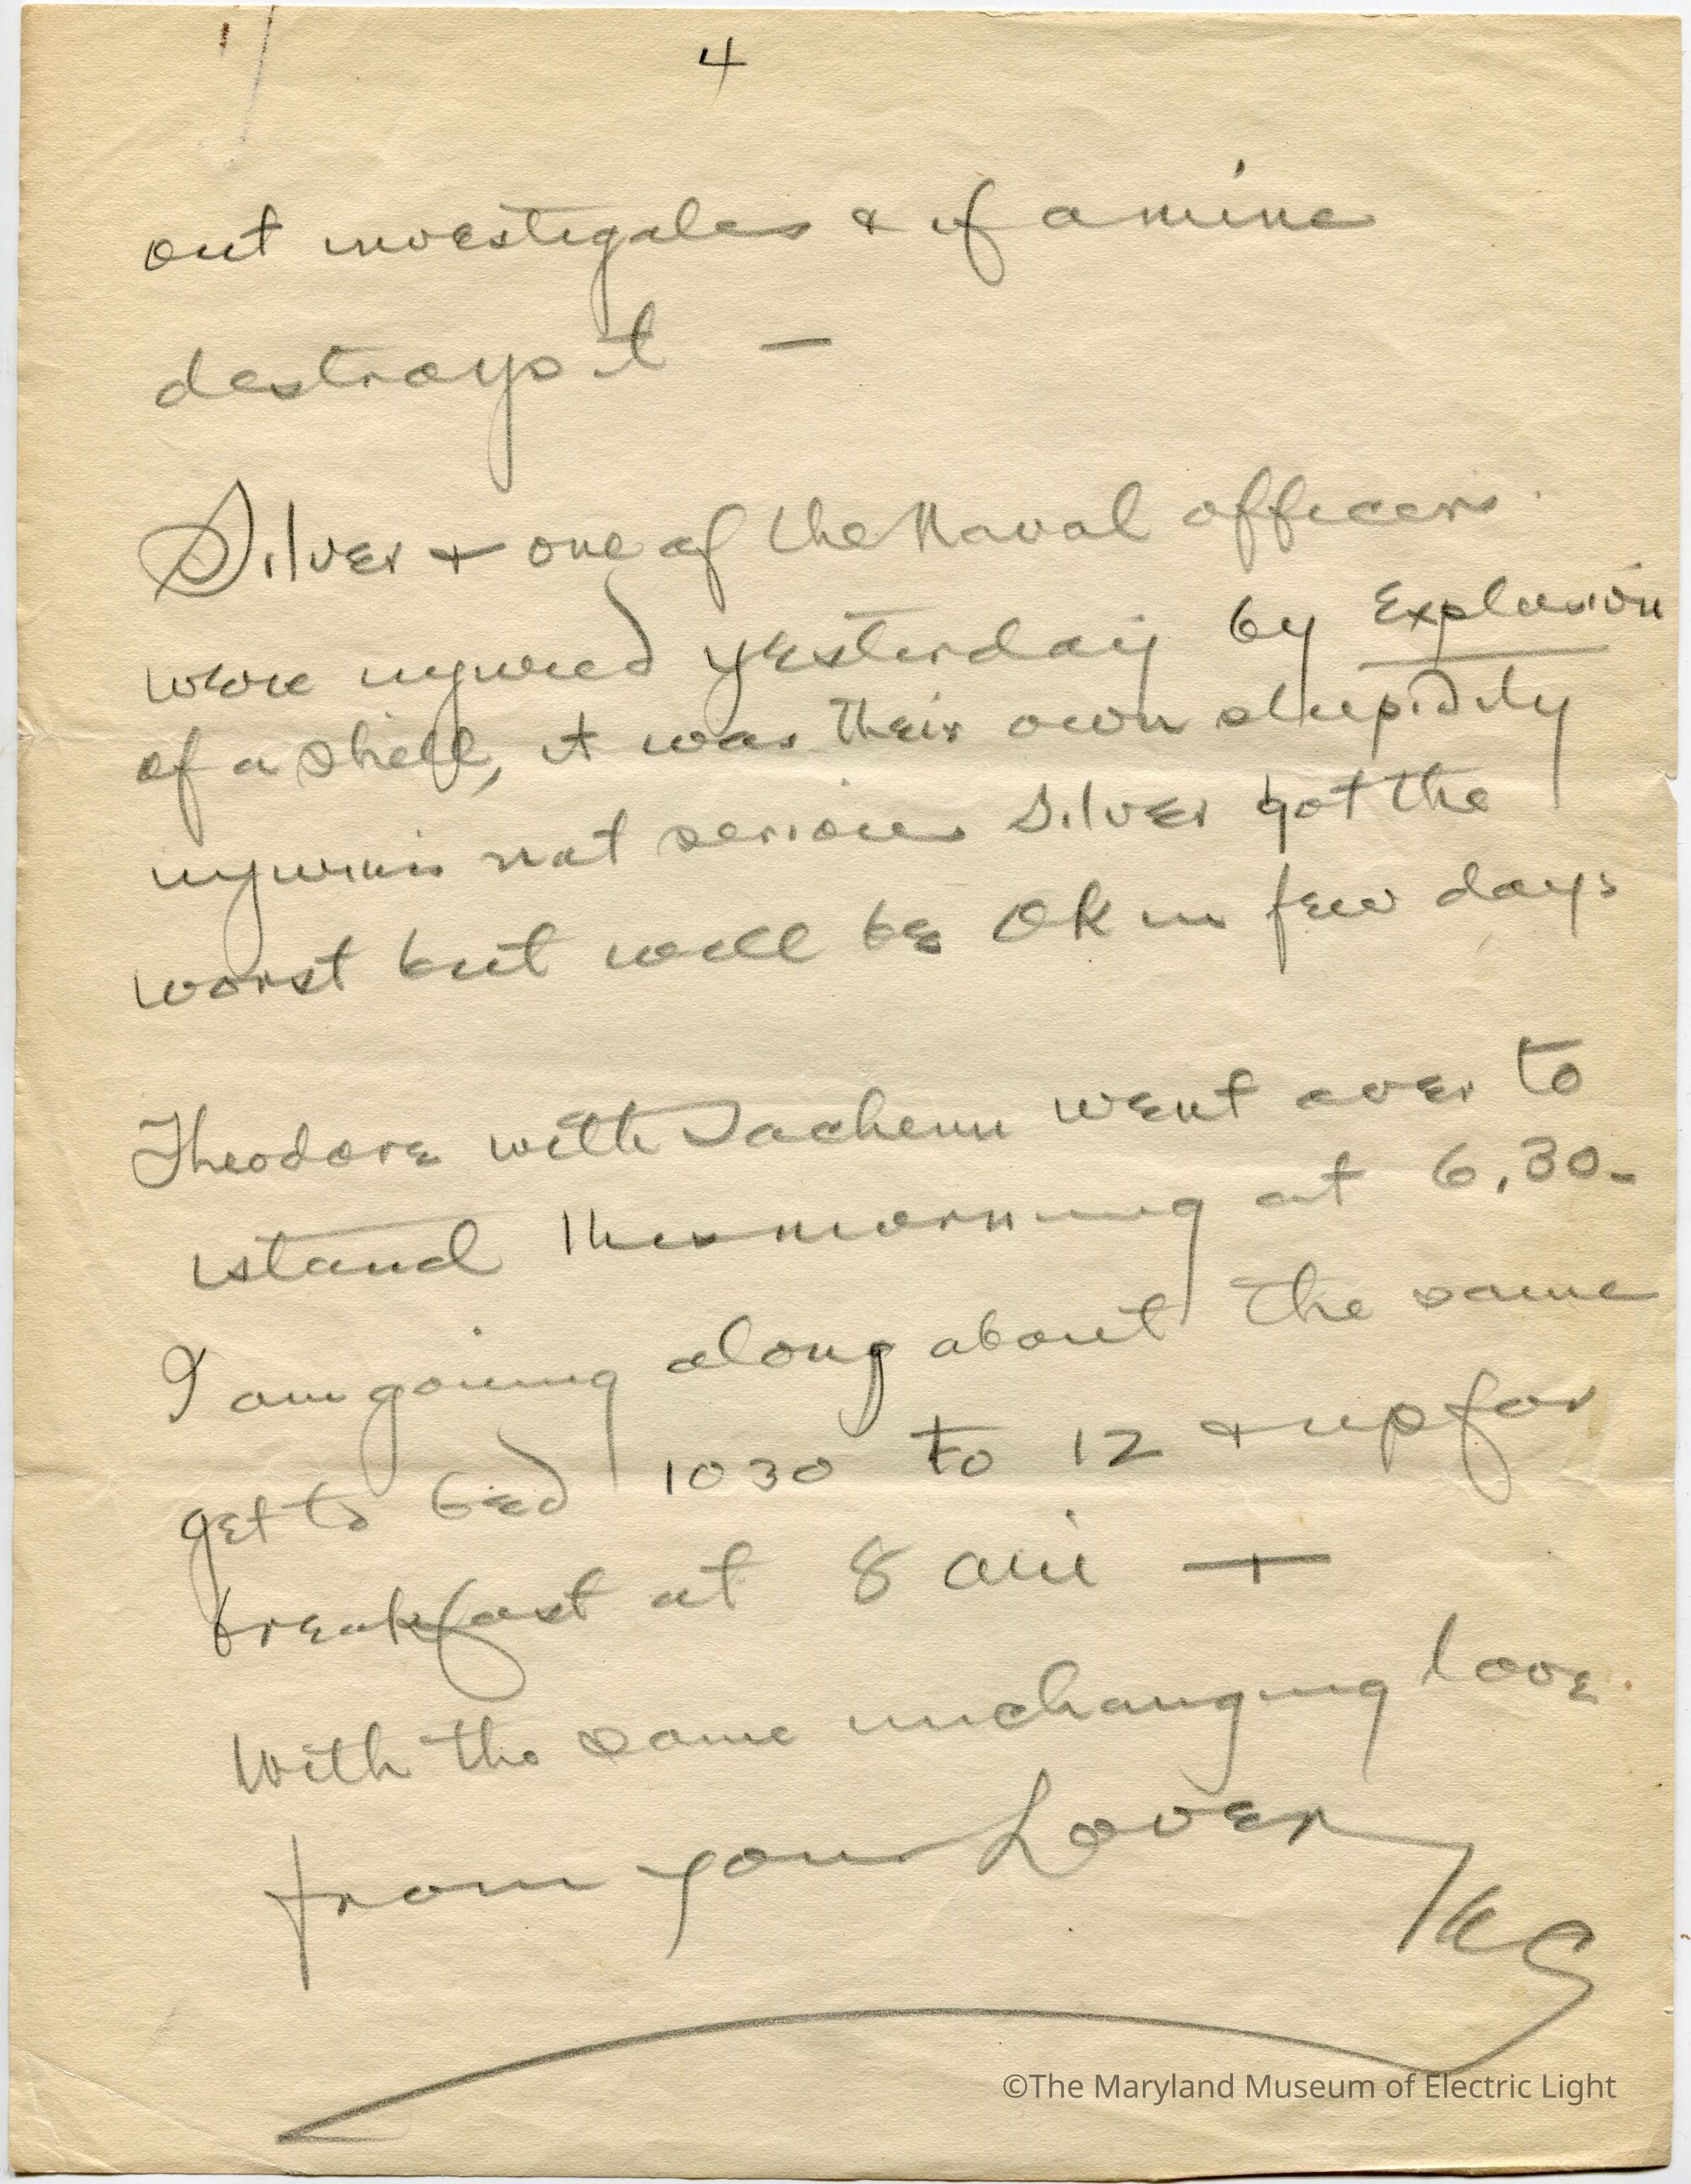 4
out investigates & if a mine
destroys it —
Silver + one of the Naval officers
were injured yesterday by Explosion
of a shell, it was their own stupidity
injuries not serious Silver got the
worst but will be OK in few days
Theodore with went over to
istand this morning at 6.30-
I am going along about the same
get to bed 1030 to 12 + up for
breakfast at 8 am —
With the same unchanging love.
from your Lover
©The Maryland Museum of Electric Light